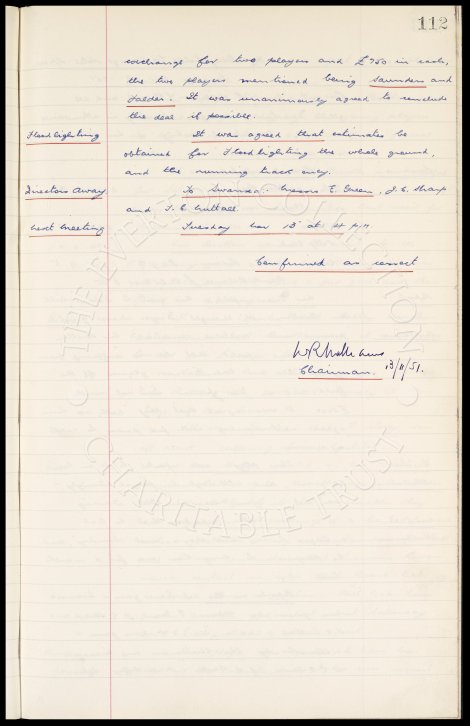 112
exchange for two players and £750 in cash,
the two players mentioned being Saunders and
Falder. It was unanimously agreed to conclude
the deal if possible.
Floodlighting It was agreed that estimates be
obtained for Floodlighting the whole ground,
and the running track only.
Directors Away. To Swansea. Messrs E. Green, J. C. Sharp
and T. C. Nuttall.
Next Meeting Tuesday Nov 13 at 4 p.m.
Confirmed as correct
Chairman. 13/11/51.
THE EVERTON COLLECTION
CHARITABLE TRUST